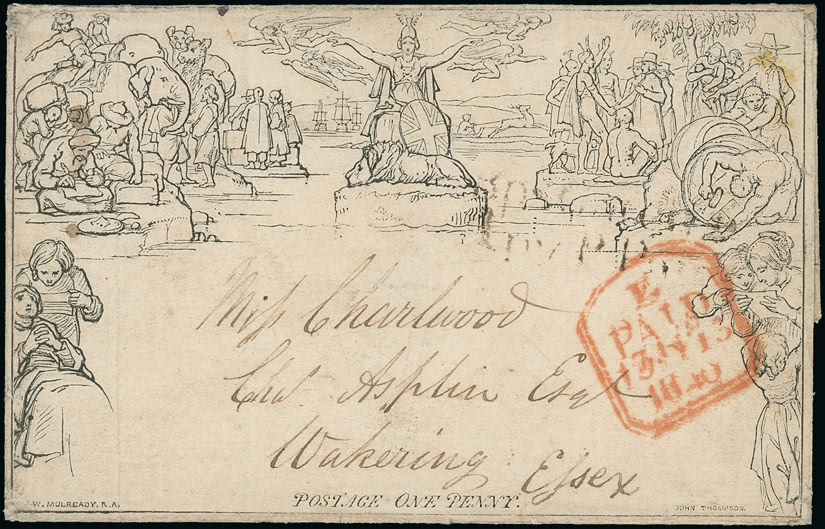 E
PAID
13 JY 13
1840
Miss Charlwood
Chas Asplin Esqr
Wakering Essex
POSTAGE ONE PENNY.
W. MULREADY. R.A.
JOHN THOMPSON.